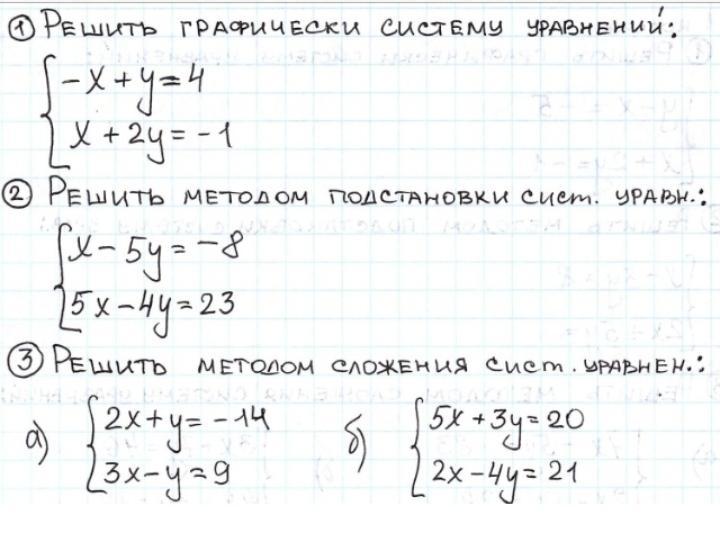 ① Решить графически систему уравнений:
-x + y = 4
x + 2y = -1
② Решить методом подстановки сист. уравн.:
x - 5y = -8
5x - 4y = 23
③ Решить методом сложения сист. уравнен.:
а) 2x + y = -14
3x - y = 9
б) 5x + 3y = 20
2x - 4y = 21